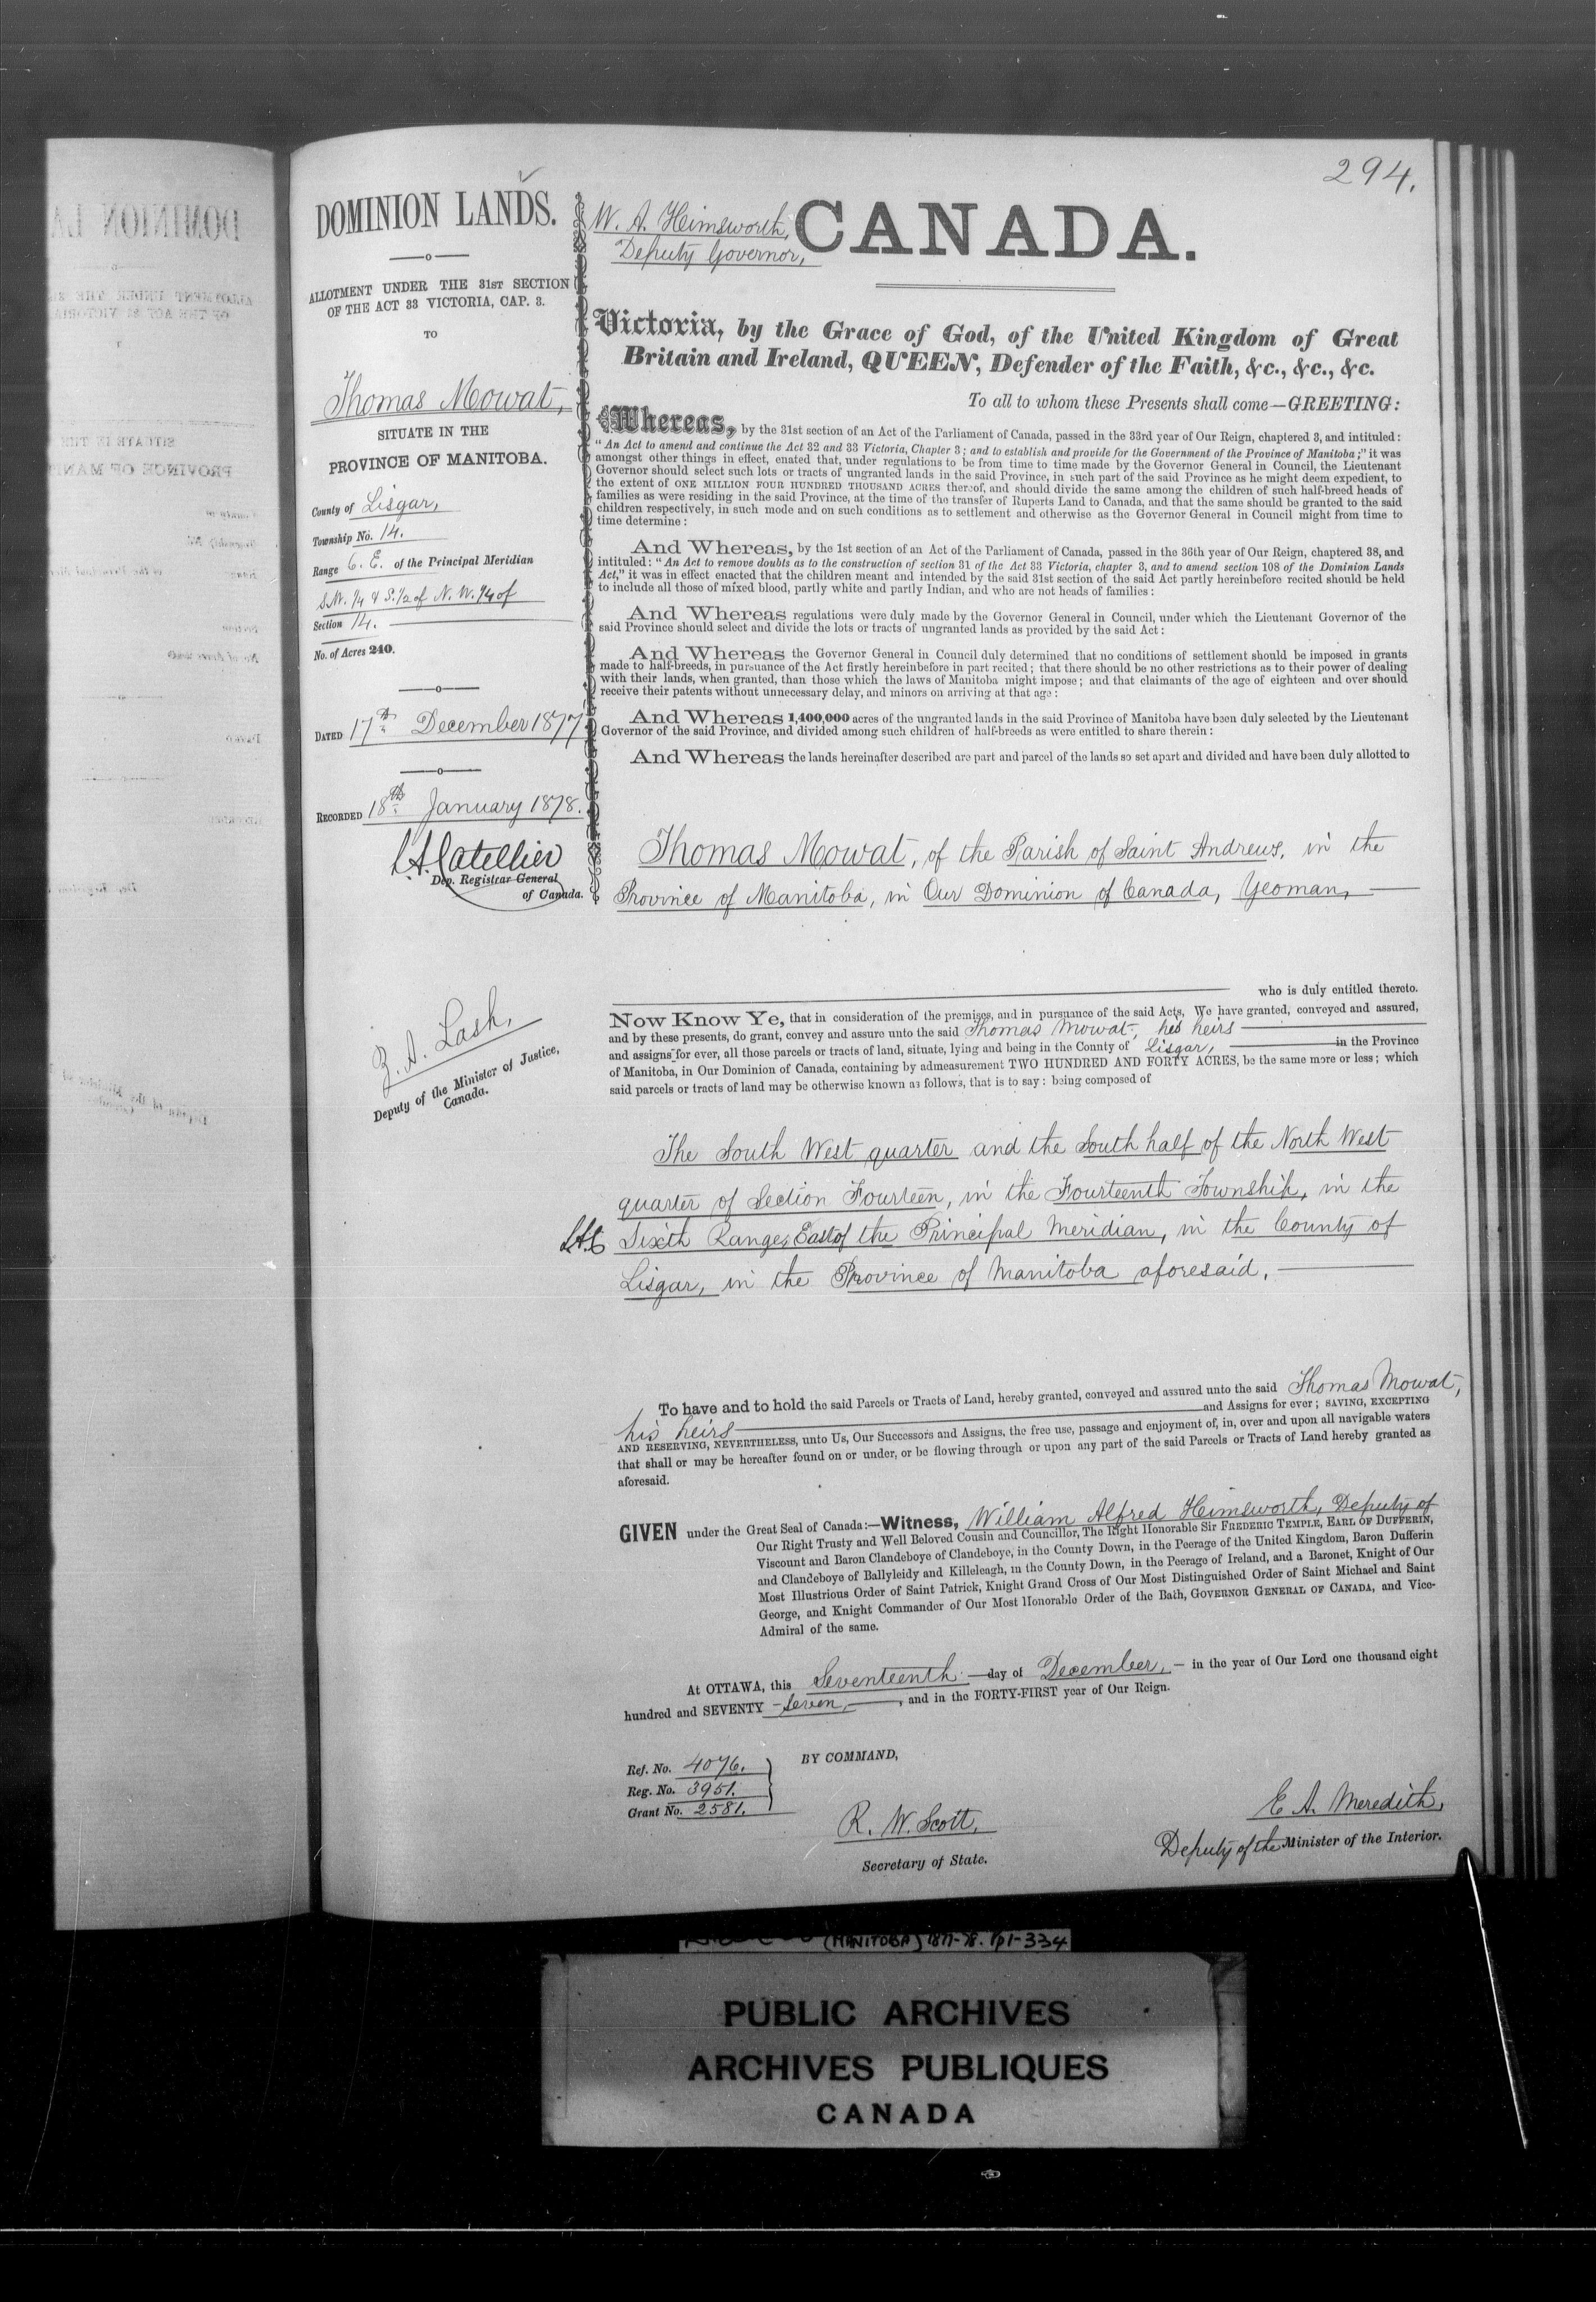 294.
DOMINION LANDS.
ALLOTMENT UNDER THE 31ST SECTION
OF THE ACT 33 VICTORIA, CAP. 3.
TO
Thomas Mowat,
SITUATE IN THE
PROVINCE OF MANITOBA.
County of Lisgar,
Township No. 14.
Range 6. E. of the Principal Meridian
S.W. 1/4 & S. 1/2 of N. W. 1/4 of
Section 14.
No. of Acres 240.
DATED 17th December 1877
RECORDED 18th January 1878.
L.A. Catellier
Dep. Registrar General
of Canada.
Z. A. Lash,
Deputy of the Minister of Justice,
Canada.
W. A. Himsworth,
Deputy Governor,
CANADA.
Victoria, by the Grace of God, of the United Kingdom of Great
Britain and Ireland, QUEEN, Defender of the Faith, &c., &c., &c.
To all to whom these Presents shall come—GREETING:
Whereas, by the 31st section of an Act of the Parliament of Canada, passed in the 33rd year of Our Reign, chaptered 3, and intituled:
"An Act to amend and continue the Act 32 and 33 Victoria, Chapter 3; and to establish and provide for the Government of the Province of Manitoba;" it was
amongst other things in effect, enated that, under regulations to be from time to time made by the Governor General in Council, the Lieutenant
Governor should select such lots or tracts of ungranted lands in the said Province, in such part of the said Province as he might deem expedient, to
the extent of ONE MILLION FOUR HUNDRED THOUSAND ACRES thereof, and should divide the same among the children of such half-breed heads of
families as were residing in the said Province, at the time of the transfer of Ruperts Land to Canada, and that the same should be granted to the said
children respectively, in such mode and on such conditions as to settlement and otherwise as the Governor General in Council might from time to
time determine:
And Whereas, by the 1st section of an Act of the Parliament of Canada, passed in the 36th year of Our Reign, chaptered 38, and
intituled: "An Act to remove doubts as to the construction of section 31 of the Act 33 Victoria, chapter 3, and to amend section 108 of the Dominion Lands
Act," it was in effect enacted that the children meant and intended by the said 31st section of the said Act partly hereinbefore recited should be held
to include all those of mixed blood, partly white and partly Indian, and who are not heads of families:
And Whereas regulations were duly made by the Governor General in Council, under which the Lieutenant Governor of the
said Province should select and divide the lots or tracts of ungranted lands as provided by the said Act:
And Whereas the Governor General in Council duly determined that no conditions of settlement should be imposed in grants
made to half-breeds, in pursuance of the Act firstly hereinbefore in part recited; that there should be no other restrictions as to their power of dealing
with their lands, when granted, than those which the laws of Manitoba might impose; and that claimants of the age of eighteen and over should
receive their patents without unnecessary delay, and minors on arriving at that age:
And Whereas 1,400,000 acres of the ungranted lands in the said Province of Manitoba have been duly selected by the Lieutenant
Governor of the said Province, and divided among such children of half-breeds as were entitled to share therein:
And Whereas the lands hereinafter described are part and parcel of the lands so set apart and divided and have been duly allotted to
Thomas Mowat, of the Parish of Saint Andrews, in the
Province of Manitoba, in Our Dominion of Canada, Yeoman,
who is duly entitled thereto.
Now Know Ye, that in consideration of the premises, and in pursuance of the said Acts, We have granted, conveyed and assured,
and by these presents, do grant, convey and assure unto the said Thomas Mowat, his heirs
and assigns for ever, all those parcels or tracts of land, situate, lying and being in the County of Lisgar, in the Province
of Manitoba, in Our Dominion of Canada, containing by admeasurement TWO HUNDRED AND FORTY ACRES, be the same more or less; which
said parcels or tracts of land may be otherwise known as follows, that is to say: being composed of
The South West quarter and the South half of the North West
quarter of Section Fourteen, in the Fourteenth Township, in the
L.A.C Sixth Range, East of the Principal Meridian, in the County of
Lisgar, in the Province of Manitoba aforesaid.
To have and to hold the said Parcels or Tracts of Land, hereby granted, conveyed and assured unto the said Thomas Mowat,
his heirs and Assigns for ever; SAVING, EXCEPTING
AND RESERVING, NEVERTHELESS, unto Us, Our Successors and Assigns, the free use, passage and enjoyment of, in, over and upon all navigable waters
that shall or may be hereafter found on or under, or be flowing through or upon any part of the said Parcels or Tracts of Land hereby granted as
aforesaid.
GIVEN under the Great Seal of Canada:—Witness, William Alfred Himsworth, Deputy of
Our Right Trusty and Well Beloved Cousin and Councillor, The Right Honorable Sir FREDERIC TEMPLE, EARL OF DUFFERIN,
Viscount and Baron Clandeboye of Clandeboye, in the County Down, in the Peerage of the United Kingdom, Baron Dufferin
and Clandeboye of Ballyleidy and Killeleagh, in the County Down, in the Peerage of Ireland, and a Baronet, Knight of Our
Most Illustrious Order of Saint Patrick, Knight Grand Cross of Our Most Distinguished Order of Saint Michael and Saint
George, and Knight Commander of Our Most Honorable Order of the Bath, GOVERNOR GENERAL OF CANADA, and Vice-
Admiral of the same.
At OTTAWA, this Seventeenth day of December, — in the year of Our Lord one thousand eight
hundred and SEVENTY -seven, , and in the FORTY-FIRST year of Our Reign.
Ref. No. 4076.
Reg. No. 3951.
Grant No. 2581.
BY COMMAND,
R. W. Scott,
Secretary of State.
E A. Meredith,
Deputy of the Minister of the Interior.
(MANITOBA) 1877-78. pp1-334
PUBLIC ARCHIVES
ARCHIVES PUBLIQUES
CANADA